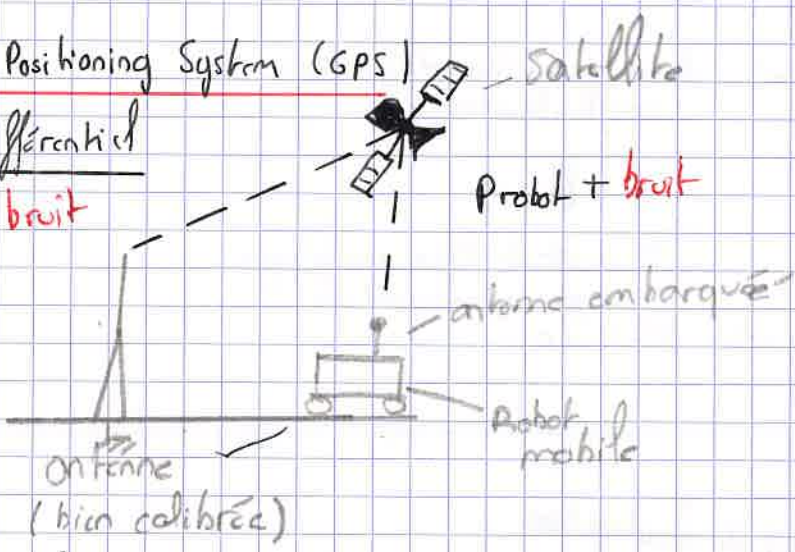 Positioning System (GPS)
Satellite
fférentiel
bruit
Probot + bruit
antenne embarquée
Robot
mobile
antenne
(bien calibrée)